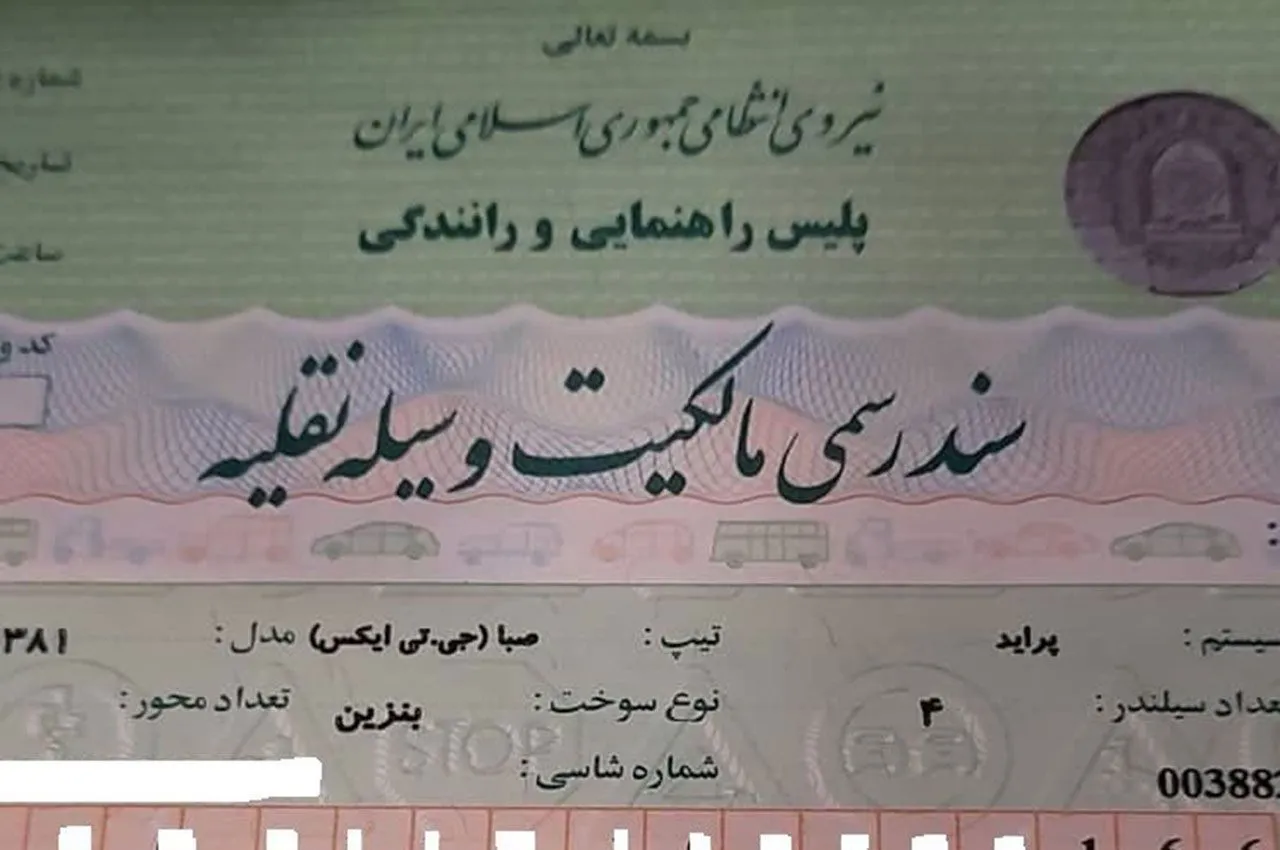 بسمه تعالی
شماره
نیروی انتظامی جمهوری اسلامی ایران
تاریخ
پلیس راهنمایی و رانندگی
ساعت
کد و
سند رسمی مالکیت وسیله نقلیه
سیستم : پراید تیپ : صبا (جی.تی ایکس) مدل : ۳۸۱
تعداد سیلندر : ۴ نوع سوخت : بنزین تعداد محور :
00388 شماره شاسی :
STOP